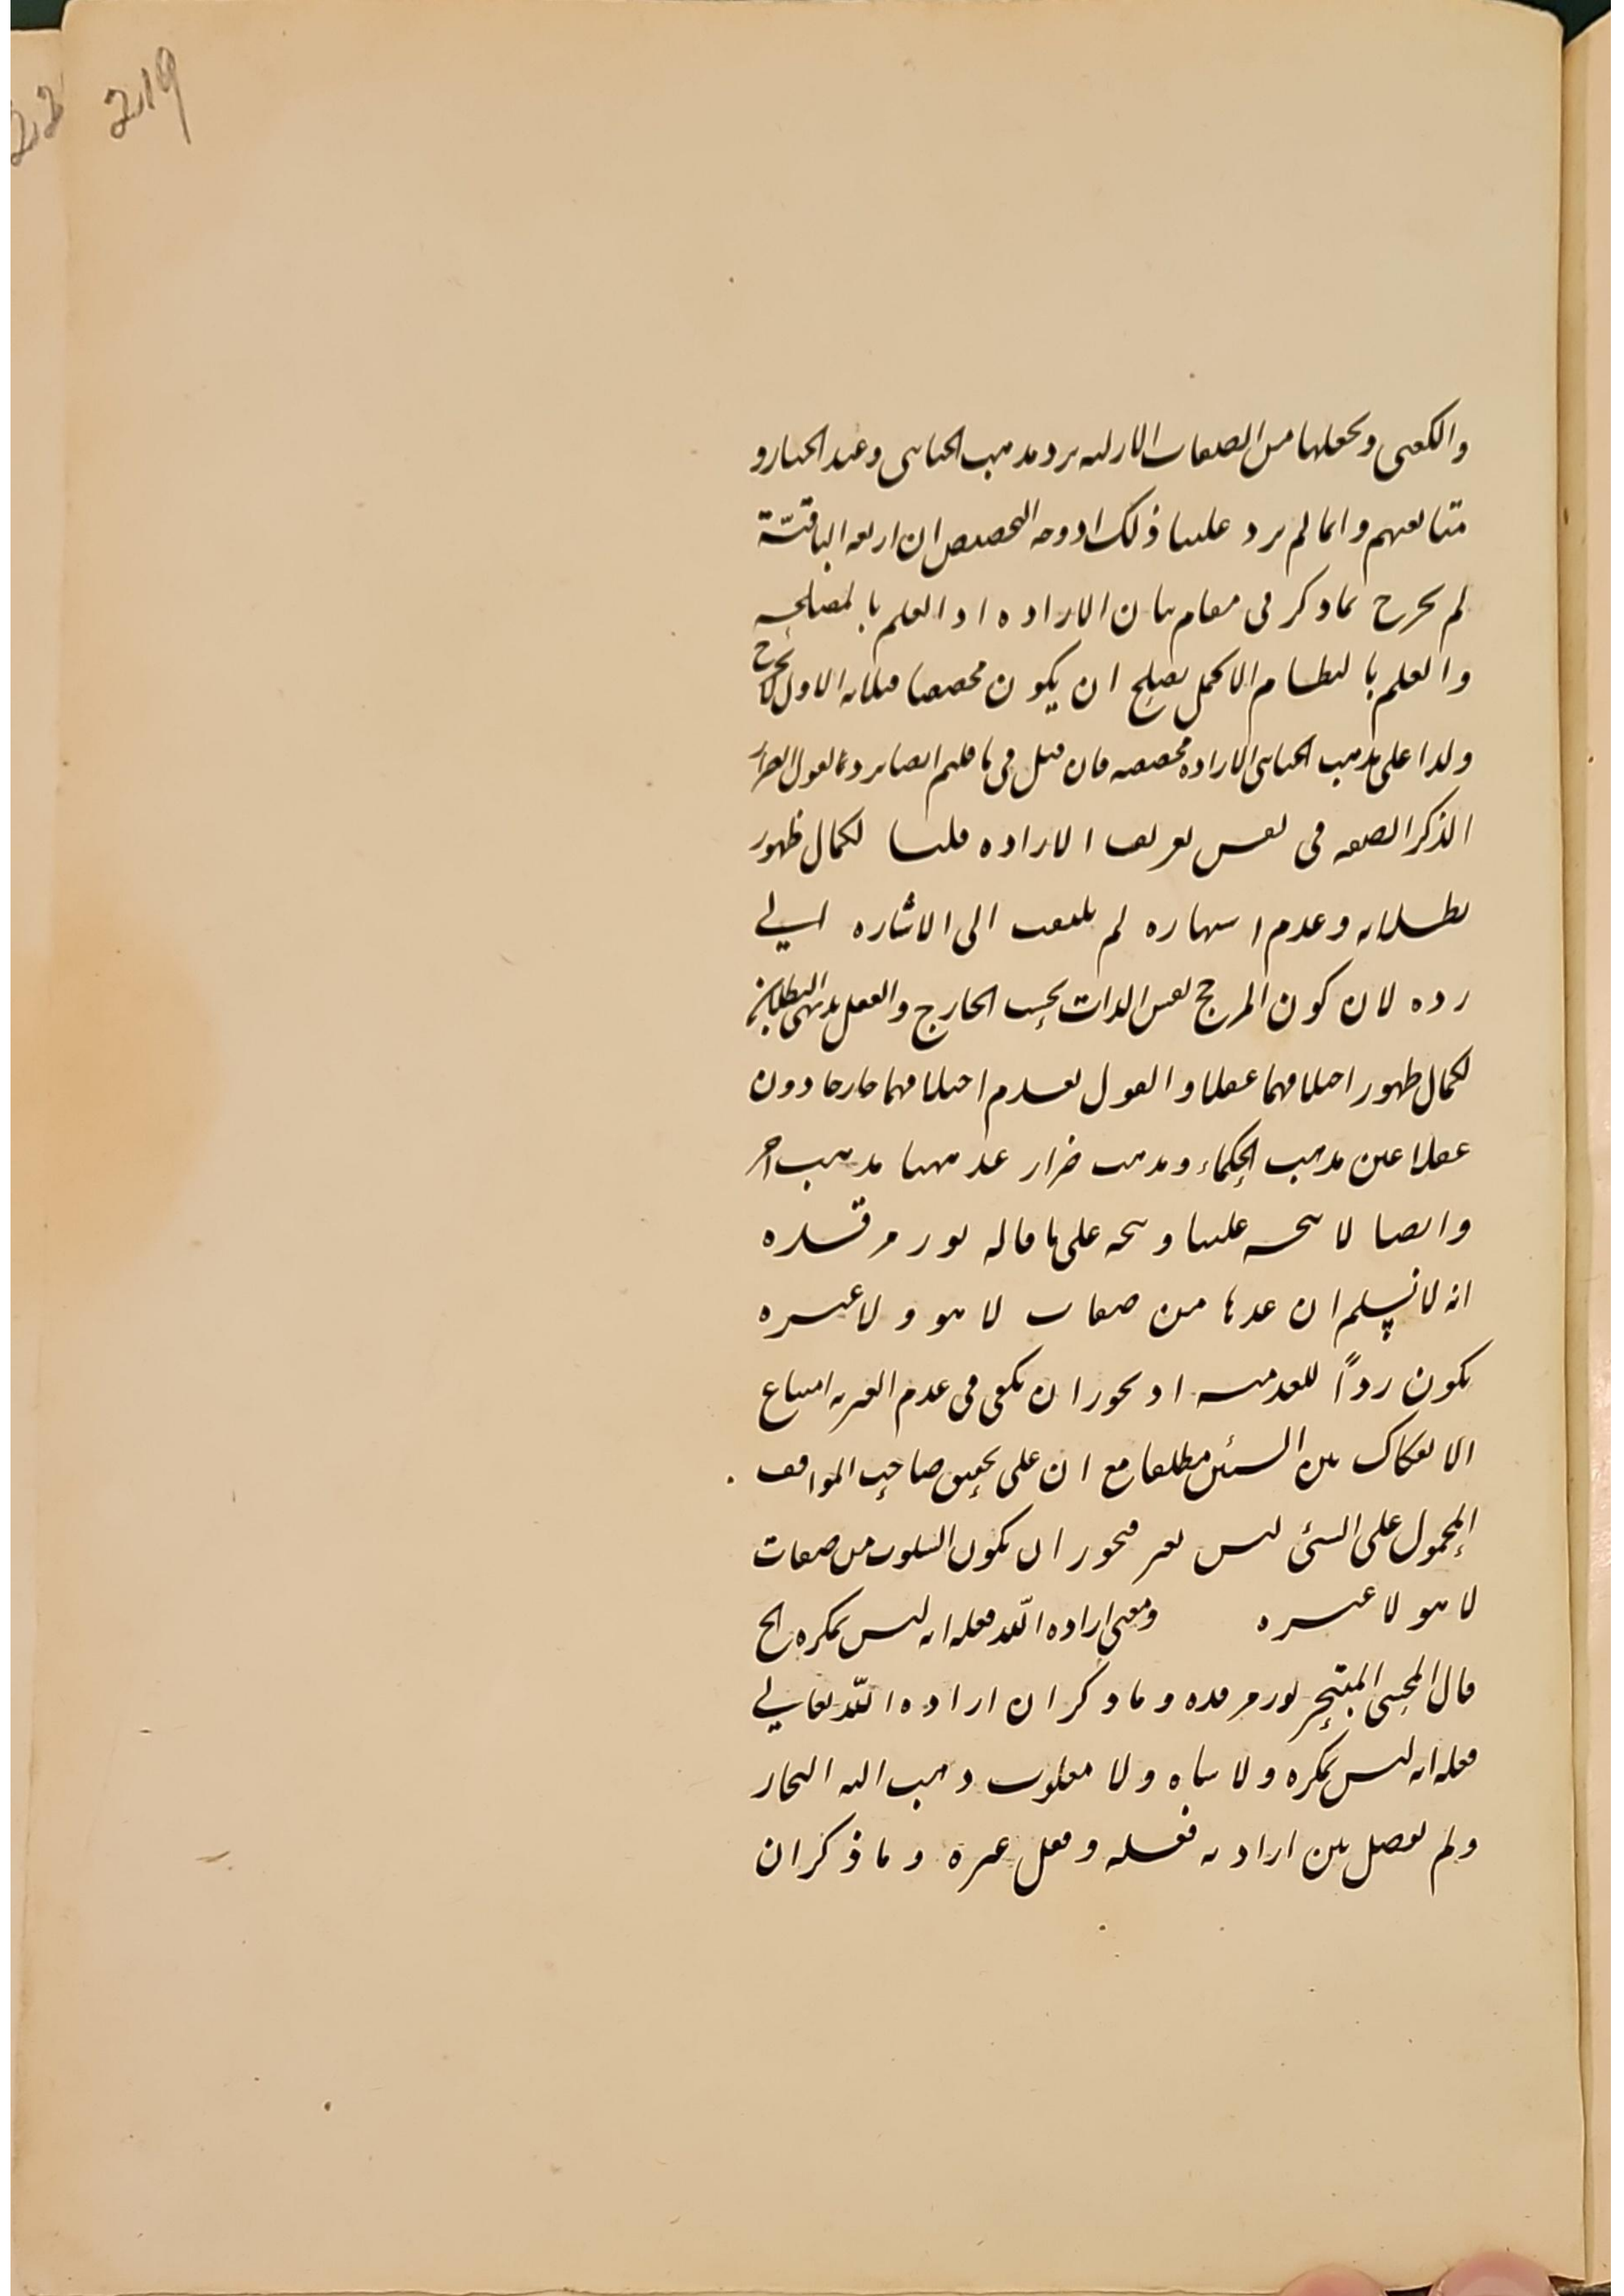 219
22
والكعبى وبجعلها من الصفات الازليه يرد مذهب الجبائى وعبد الجبار و
متابعيهم وانما لم يرد علينا ذلك اذ وجه التخصيص ان اربعه الباقيّة
لم يخرج بما ذكر فى مقام بيان الاراده اذ العلم بالمصلحه
والعلم بالنظام الاكمل يصلح ان يكون مخصصا فبيانه الاول لا يخرج
ولذا على مذهب الجبائى الاراده مخصصه فان قيل فى ما قلتم ايضا يرد بما لقول الضرار
الذكر الصفه فى نفس تعريف الاراده قلنا لكمال ظهور
بطلانه وعدم اشتهاره لم يلتفت الى الاشاره الي
رده لان كون المرجح نفس الذات بحسب الخارج والعقل بديهى البطلان
لكمال ظهور اختلافهما عقلا والقول بعدم اختلافهما خارجا دون
عقلا عين مذهب الحكماء ومذهب ضرار عد مهنا مذهب اخر
وايضا لا يتجه علينا ويتجه على ما قاله نور مرقده
انه لا نسلم ان عدها من صفات لا هو ولا غيره
يكون رداً للعدميه اذ يجوز ان يكفى فى عدم الغيريه امتناع
الانفكاك بين الشيئين مطلقا مع ان على تحقيق صاحب المواقف
المحمول على الشئ ليس بغير فيجوز ان يكون السلوب من صفات
لا هو لا غيره ومعنى اراده الله فعله انه ليس بمكره الخ
قال المحشى المتبحر نور مرقده وما ذكر ان اراده الله تعالي
فعله انه ليس بمكره ولا ساه ولا مغلوب ذهب اليه النجار
ولم يفصل بين ارادته فعله وفعل غيره وما ذكر ان